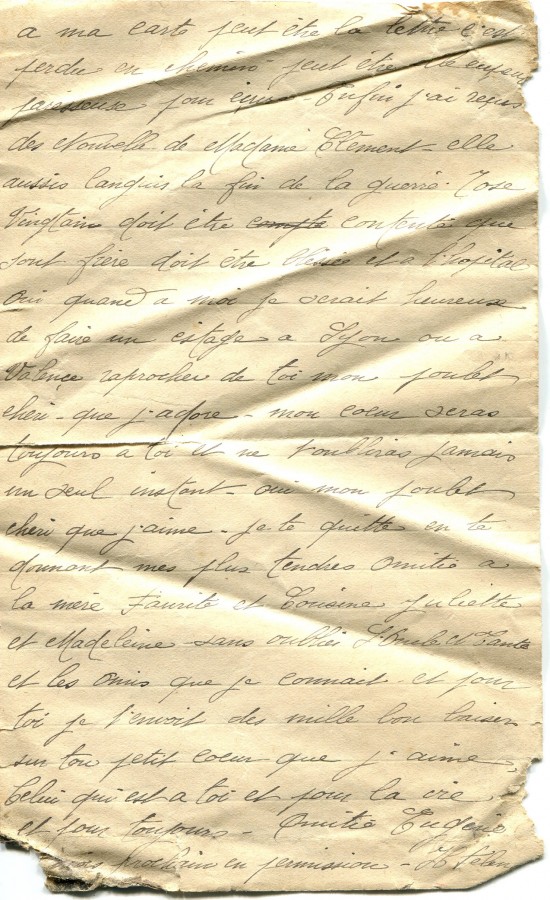 a ma carte peut être la lettre c'est
perdu en chemins peut être
paresseuse pour - Enfin j'ai reçus
des Nouvelle de Madame Clement - elle
aussis languis la fin de la guerre. Rose
Vingtain doit être compte contente que
sont frère doit être Blessé et a l'hopital
oui quand a moi je serait heureuse
de faire un estage a Lyon ou a
Valençe raprocher de toi mon poulet
chéri - que j'adore - mon coeur seras
toujours a toi et ne t'oubliras jamais
un seul instant - oui mon poulet
chéri que j'aime - je te quitte en te
donnant mes plus tendres Amitié a
la mère Faurite et Cousine Juliette
et Madeleine - sans oublier L'Oncle et Tante
et les Amis que je connait - et pour
toi je t'envoit des mille bon baiser -
sur ton petit coeur que j'aime,
Celui qui est a toi et pour la vie
et pour toujours - Amitié Eugène
prochain en permission -